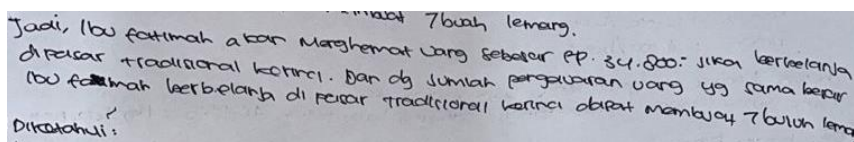 7 buah lemang.
Jadi, Ibu fatimah akan Menghemat uang sebesar Rp. 34.800: jika berbelanja
dipasar tradisional kerinci. Dan dg jumlah yg sama besar
ibu berbelanja di pasar tradisional kerinci dapat 7
Diketahui: